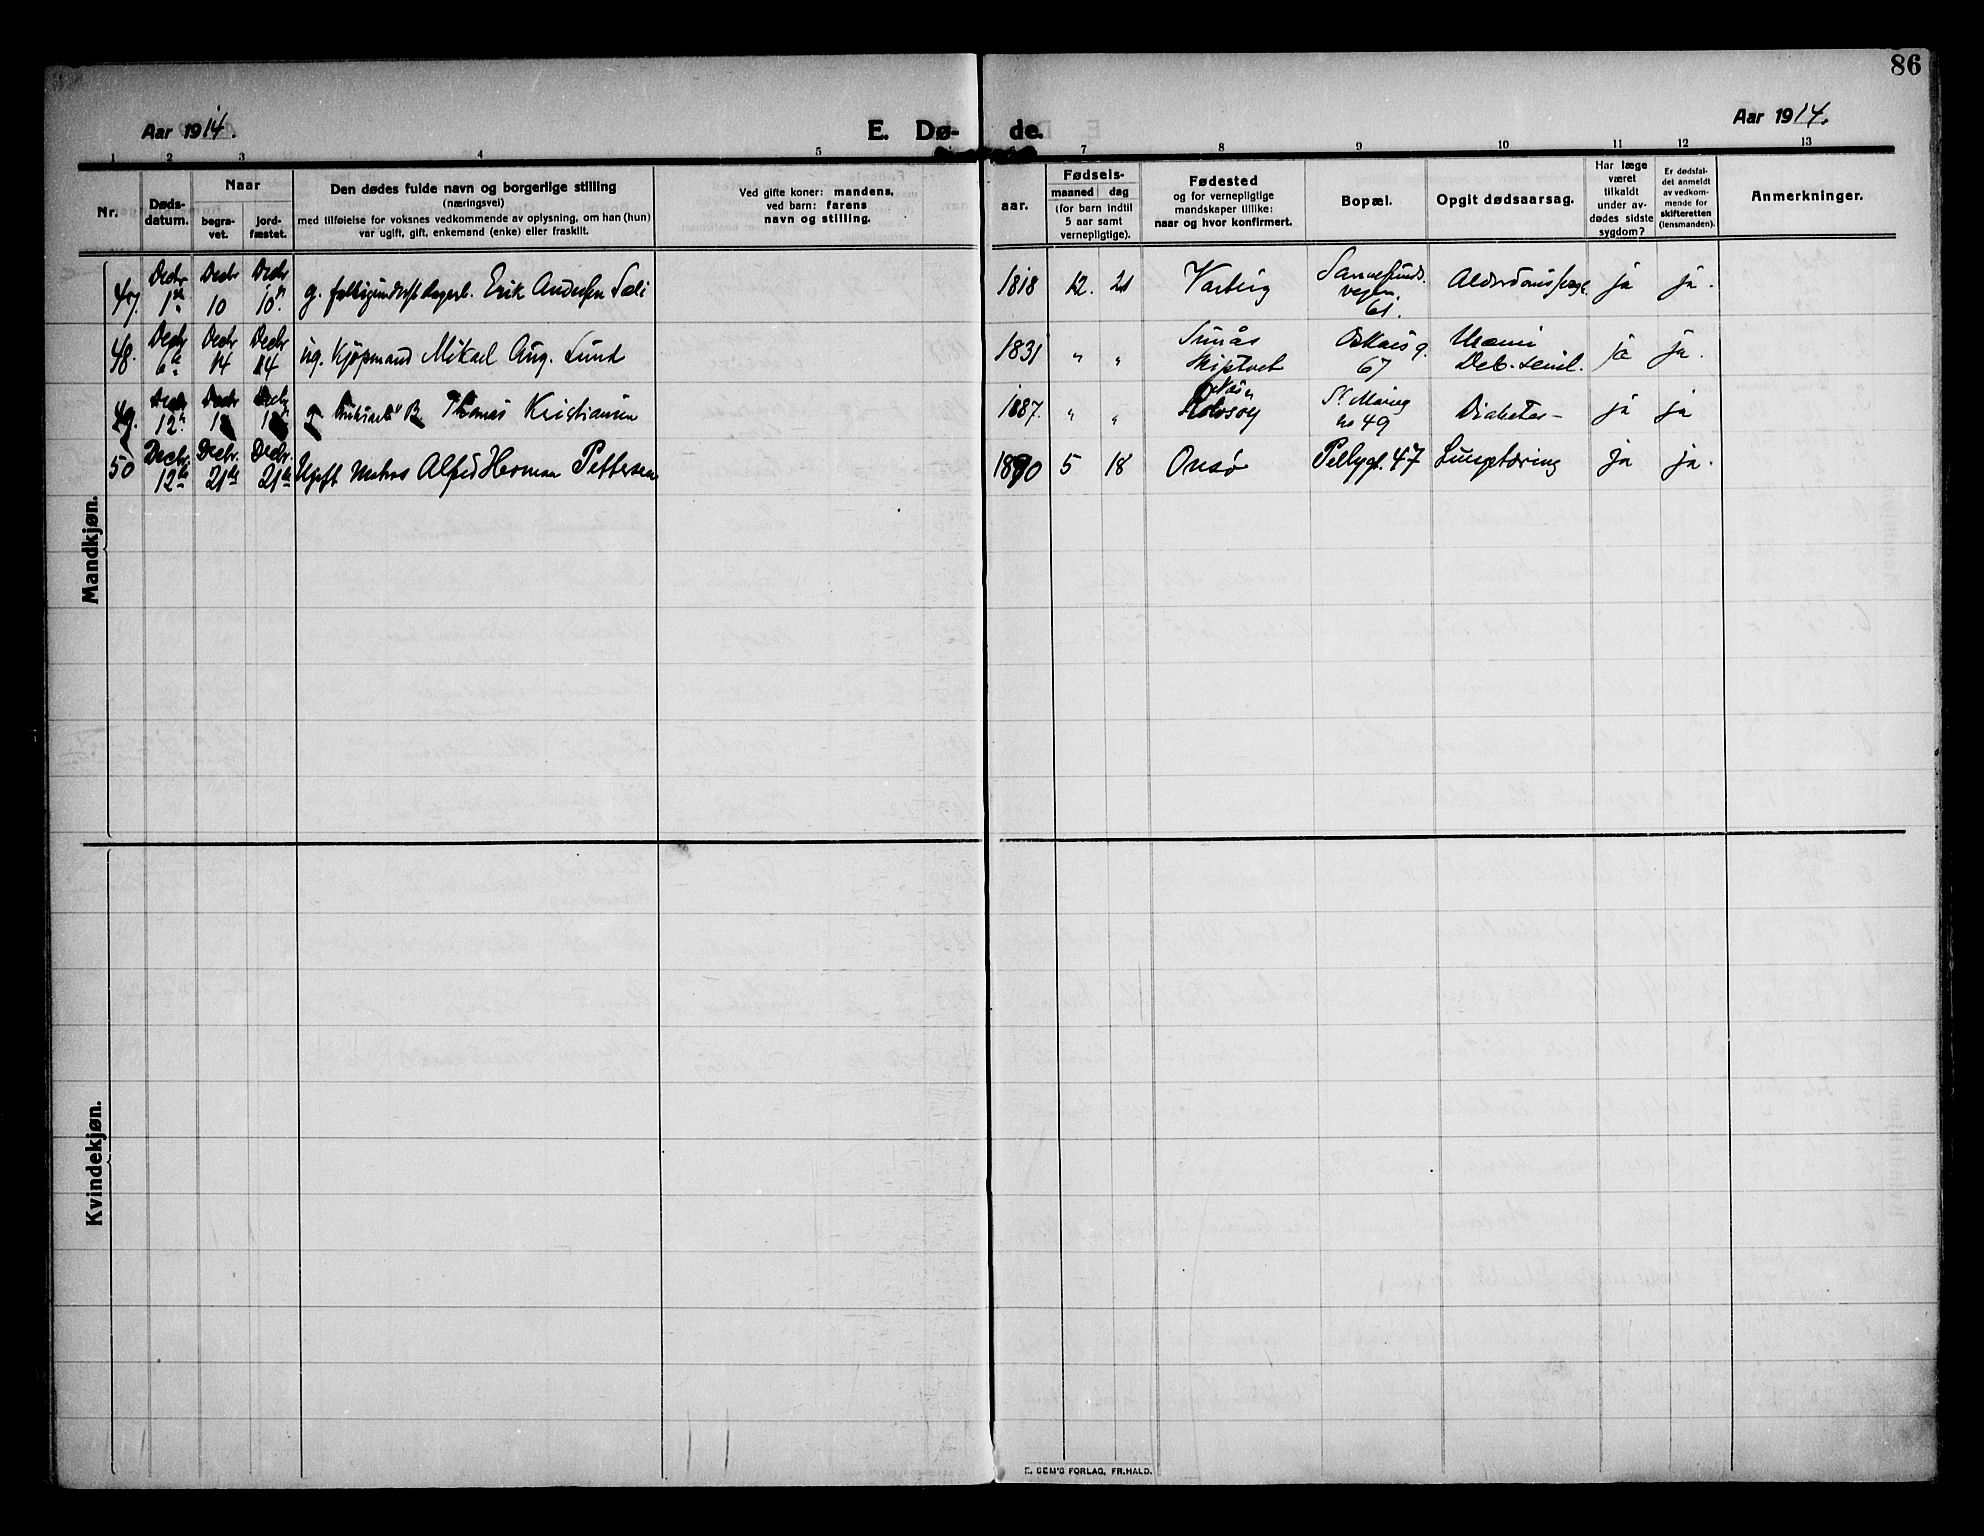 86
Aar 1914.
E. Dø-
de.
Aar 1914.
1 2 3 4 5 7 8 9 10 11 12 13
Nr.
Døds-
datum.
Naar
begra-
vet.
jord-
fæstet.
Den dødes fulde navn og borgerlige stilling
(næringsvei)
med tilføielse for voksnes vedkommende av oplysning, om han (hun)
var ugift, gift, enkemand (enke) eller fraskilt.
Ved gifte koner: mandens,
ved barn: farens
navn og stilling.
Fødsels-
aar.
maaned dag
(for barn indtil
5 aar samt
vernepligtige).
Fødested
og for vernepligtige
mandskaper tillike:
naar og hvor konfirmert.
Bopæl.
Opgit dødsaarsag.
Har læge
været
tilkaldt
under av-
dødes sidste
sygdom?
Er dødsfal-
det anmeldt
av vedkom-
mende for
skifteretten
(lensmanden).
Anmerkninger.
Mandkjøn.
47. Decbr 1 Decbr 10 Decbr 10 g. Erik Andersen Sæli 1818 12. 21 Varteig vegen. 61. ja ja.
48. Decbr 6 Decbr 14 Decbr 14 ug. Kjøpmand Mikael Aug. Lund 1831 " " Skiptvet 67 Uræmi Deb. senil. ja ja.
49. Decbr 12 Decbr Decbr g Thomas Kristiansen 1887. " " St. Marieg no 49 Diabetes - ja ja
50 Decbr. 12 Decbr. 21 Decbr. 21 Ugift Matros Alfred Herman Pettersen 1890 5 18 Onsø Pellygt. 47 Lungetæring ja ja.
Kvindekjøn.
E. SEM'S FORLAG, FR.HALD.